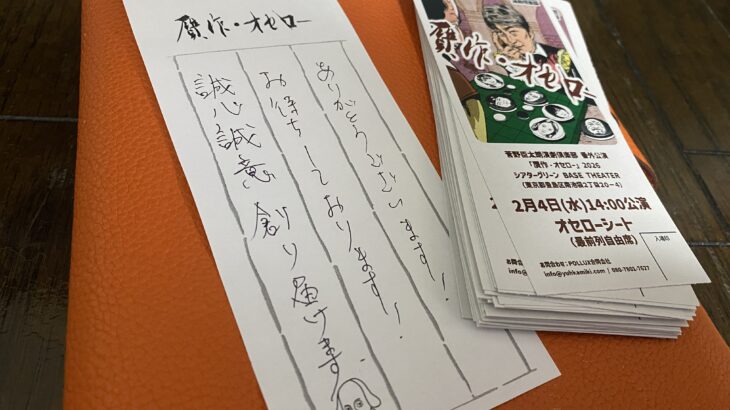 贋作・オセロー
ありがとうございます!
お待ちしております!
誠心誠意創り届けます
贋作・オセロー
菅野臣太朗演劇倶楽部 番外公演
「贋作・オセロー」2026
シアターグリーン BASE THEATER
(東京都豊島区南池袋2丁目20-4)
2月4日(水)14:00公演
オセローシート
(最前列自由席)
入場印
お問合わせ:POLLUX合同会社
info@yuhkamiki.com / 080-7801-7527
info@